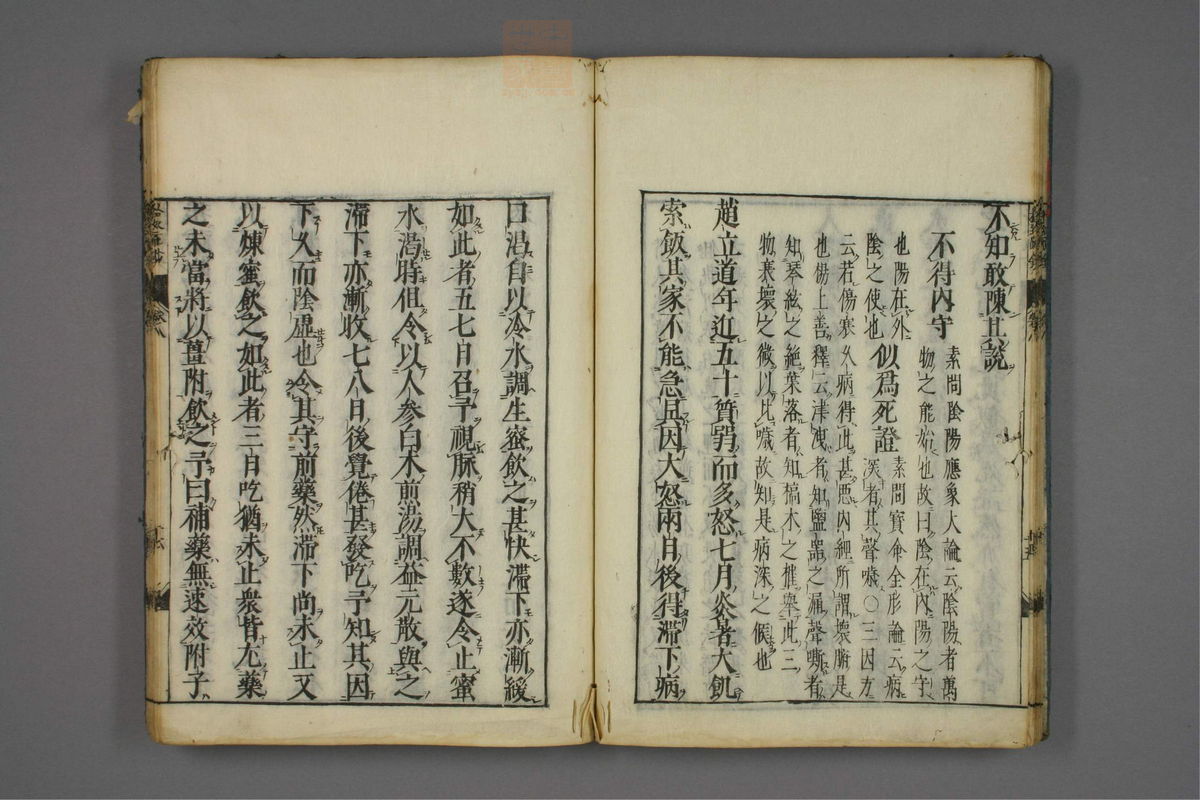 不知敢陳其說
不得内守
素問陰陽應象大論云陰陽者萬
物之能始也故曰陰在内陽之守
也陽在外
陰之使也
似爲死證
素問寳命全形論云病
深者其聲噦○三因方
云若傷寒久病得此甚惡内經所謂壞腑是
也楊上善釋云津洩者知鹽器之漏聲嘶者
知琴絃之絶葉落者知槁木之摧舉此三
物衰壞之微以比噦故知是病深之候也
趙立道年近五十質弱而多怒七月炎暑大飢
索飯其家不能急具因大怒兩日後得滯下病
口渴自以冷水調生蜜飲之甚快滯下亦漸緩
如此者五七日召予視脉稍大不數遂令止蜜
水渴時但令以人參白朮煎湯調益元散與之
滯下亦漸收七八日後覺倦甚發吃予知其因
下久而陰虛也令其守前藥然滯下尚未止又
以煉蜜飲之如此者三日吃猶未止衆皆尤藥
之未當將以薑附飲之予曰補藥無速效附子